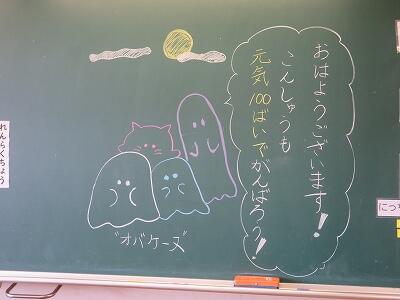 おはようございます!
こんしゅうも
元気100ばいでがんばろう!
"オバケーズ"
れんらくちょう
にっち